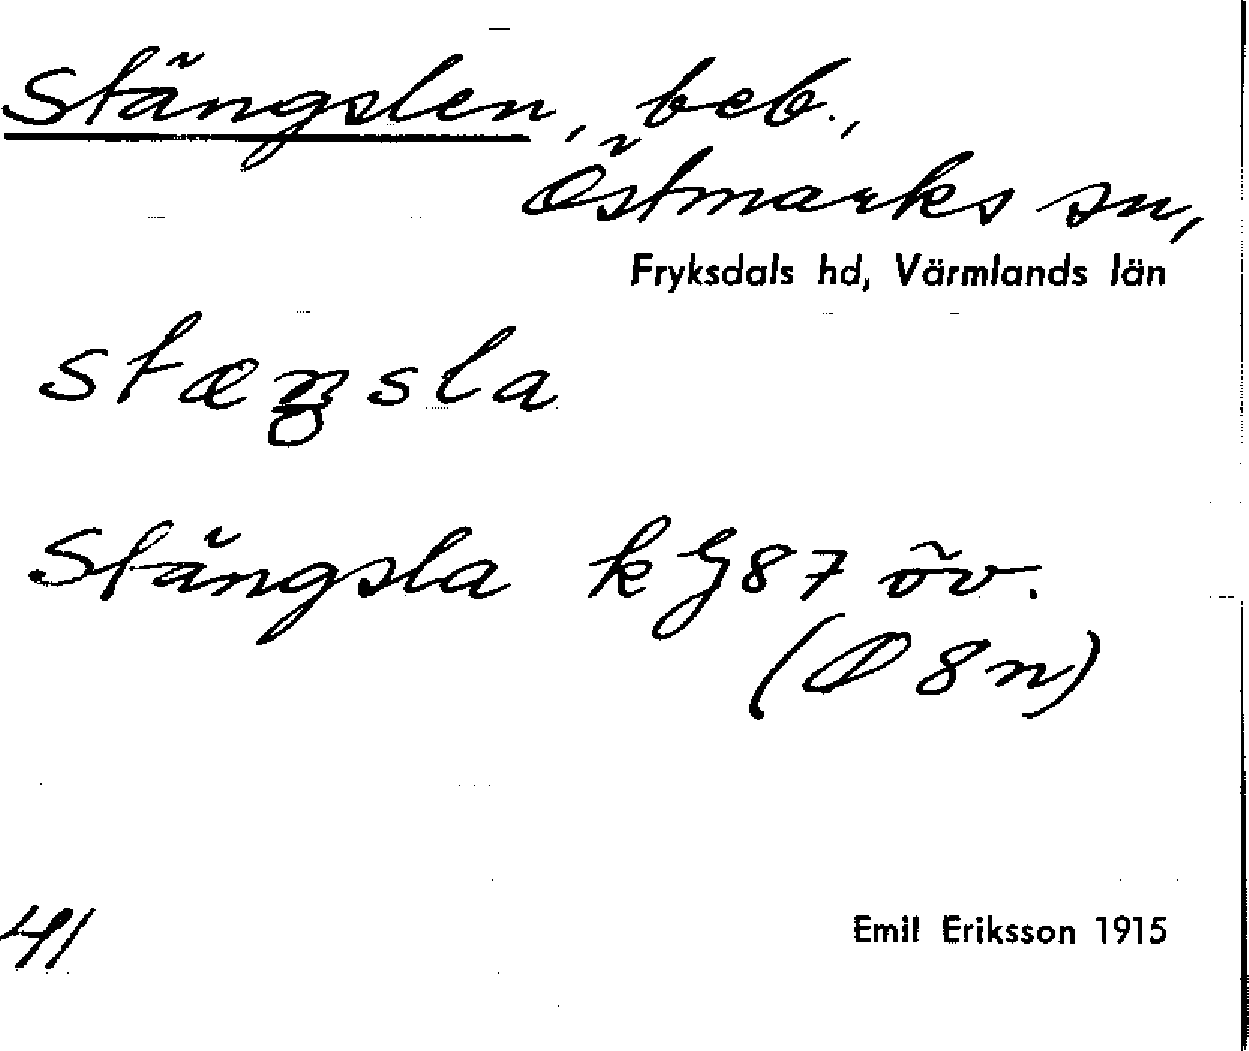 Stängslen, beb.,
Östmarks sn,
Fryksdals hd, Värmlands län
stæŋsla
Stängsla k G87 öv.
(O 8 n)
41
Emil Eriksson 1915